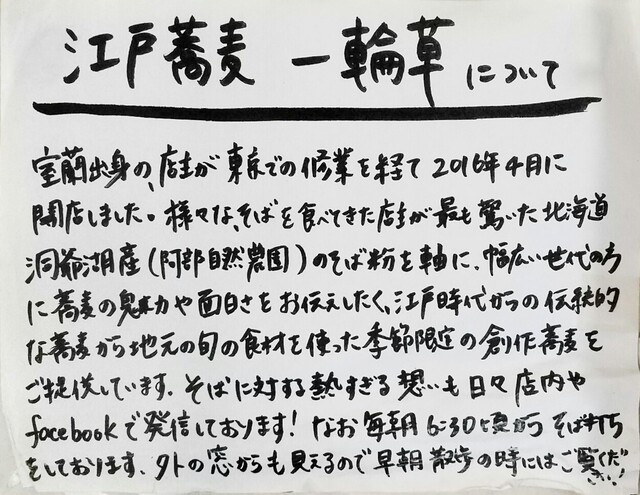 江戸蕎麦 一輪草 について
室蘭出身の、店主が東京での修業を経て2016年4月に
開店しました。様々な、そばを食べてきた店主が最も驚いた北海道
洞爺湖産(阿部自然農園)のそば粉を軸に、幅広い世代の方
に蕎麦の魅力や面白さをお伝えしたく、江戸時代からの伝統的
な蕎麦から地元の旬の食材を使った季節限定の創作蕎麦を
ご提供しています。そばに対する熱すぎる想いも日々店内や
facebookで発信しております!なお毎朝6:30頃からそば打ち
をしております。外の窓からも見えるので早朝散歩の時にはご覧くだ
さい!